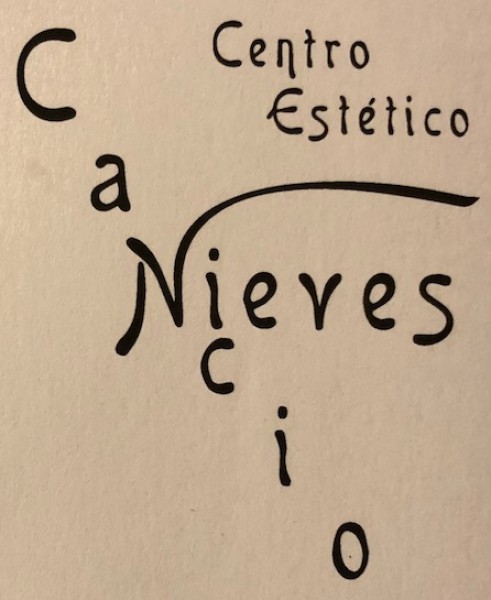 Centro
Estético
Nieves
CaNcio